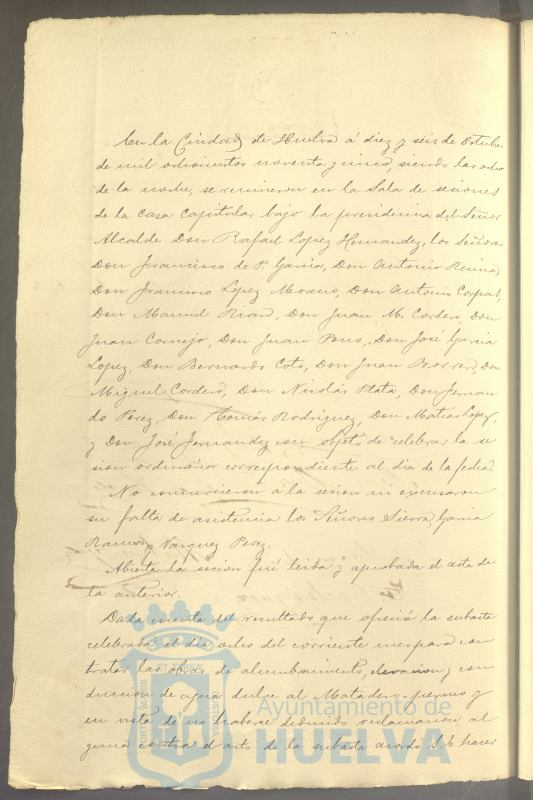 En la Ciudad de Huelva á diez y seis de Octubre
de mil ochocientos noventa y cinco, siendo las ocho
de la noche, se reunieron en la Sala de sesiones
de la casa Capitular bajo la presidencia del Señor
Alcalde Don Rafael López Hernandez, los Señores
Don Francisco de P. Garcia, Don Antonio Reina,
Don Francisco López Moreno, Don Antonio Corpas,
Don Manuel Rivero, Don Juan M. Cordero, Don
Juan Cornejo, Don Juan Pons, Don José Garcia
Lopez, Don Bernardo Coto, Don Juan Borrero, Don
Miguel Cordero, Don Nicolás Plata, Don Fernan
do Perez, Don Tomás Rodriguez, Don Matias Lopez,
y Don José Fernandez con objeto de celebrar la se
sion ordinaria correspondiente al dia de la fecha.
No concurrieron a la sesion ni escusaron
su falta de asistencia los Señores Sierra, Garcia
Ramos y Vazquez Perez.
Abierta la sesion fué leida y aprobada el acta de
la anterior.
Dada cuenta del resultado que ofreció la subasta
celebrada el dia ocho del corriente mes para con
tratar las obras de alumbramiento, elevacion y con
duccion de agua dulce al Matadero público y
en vista de no haberse deducido reclamacion al
guna contra el acto de la subasta acordó S. E. hacer
Ayuntamiento de
HUELVA